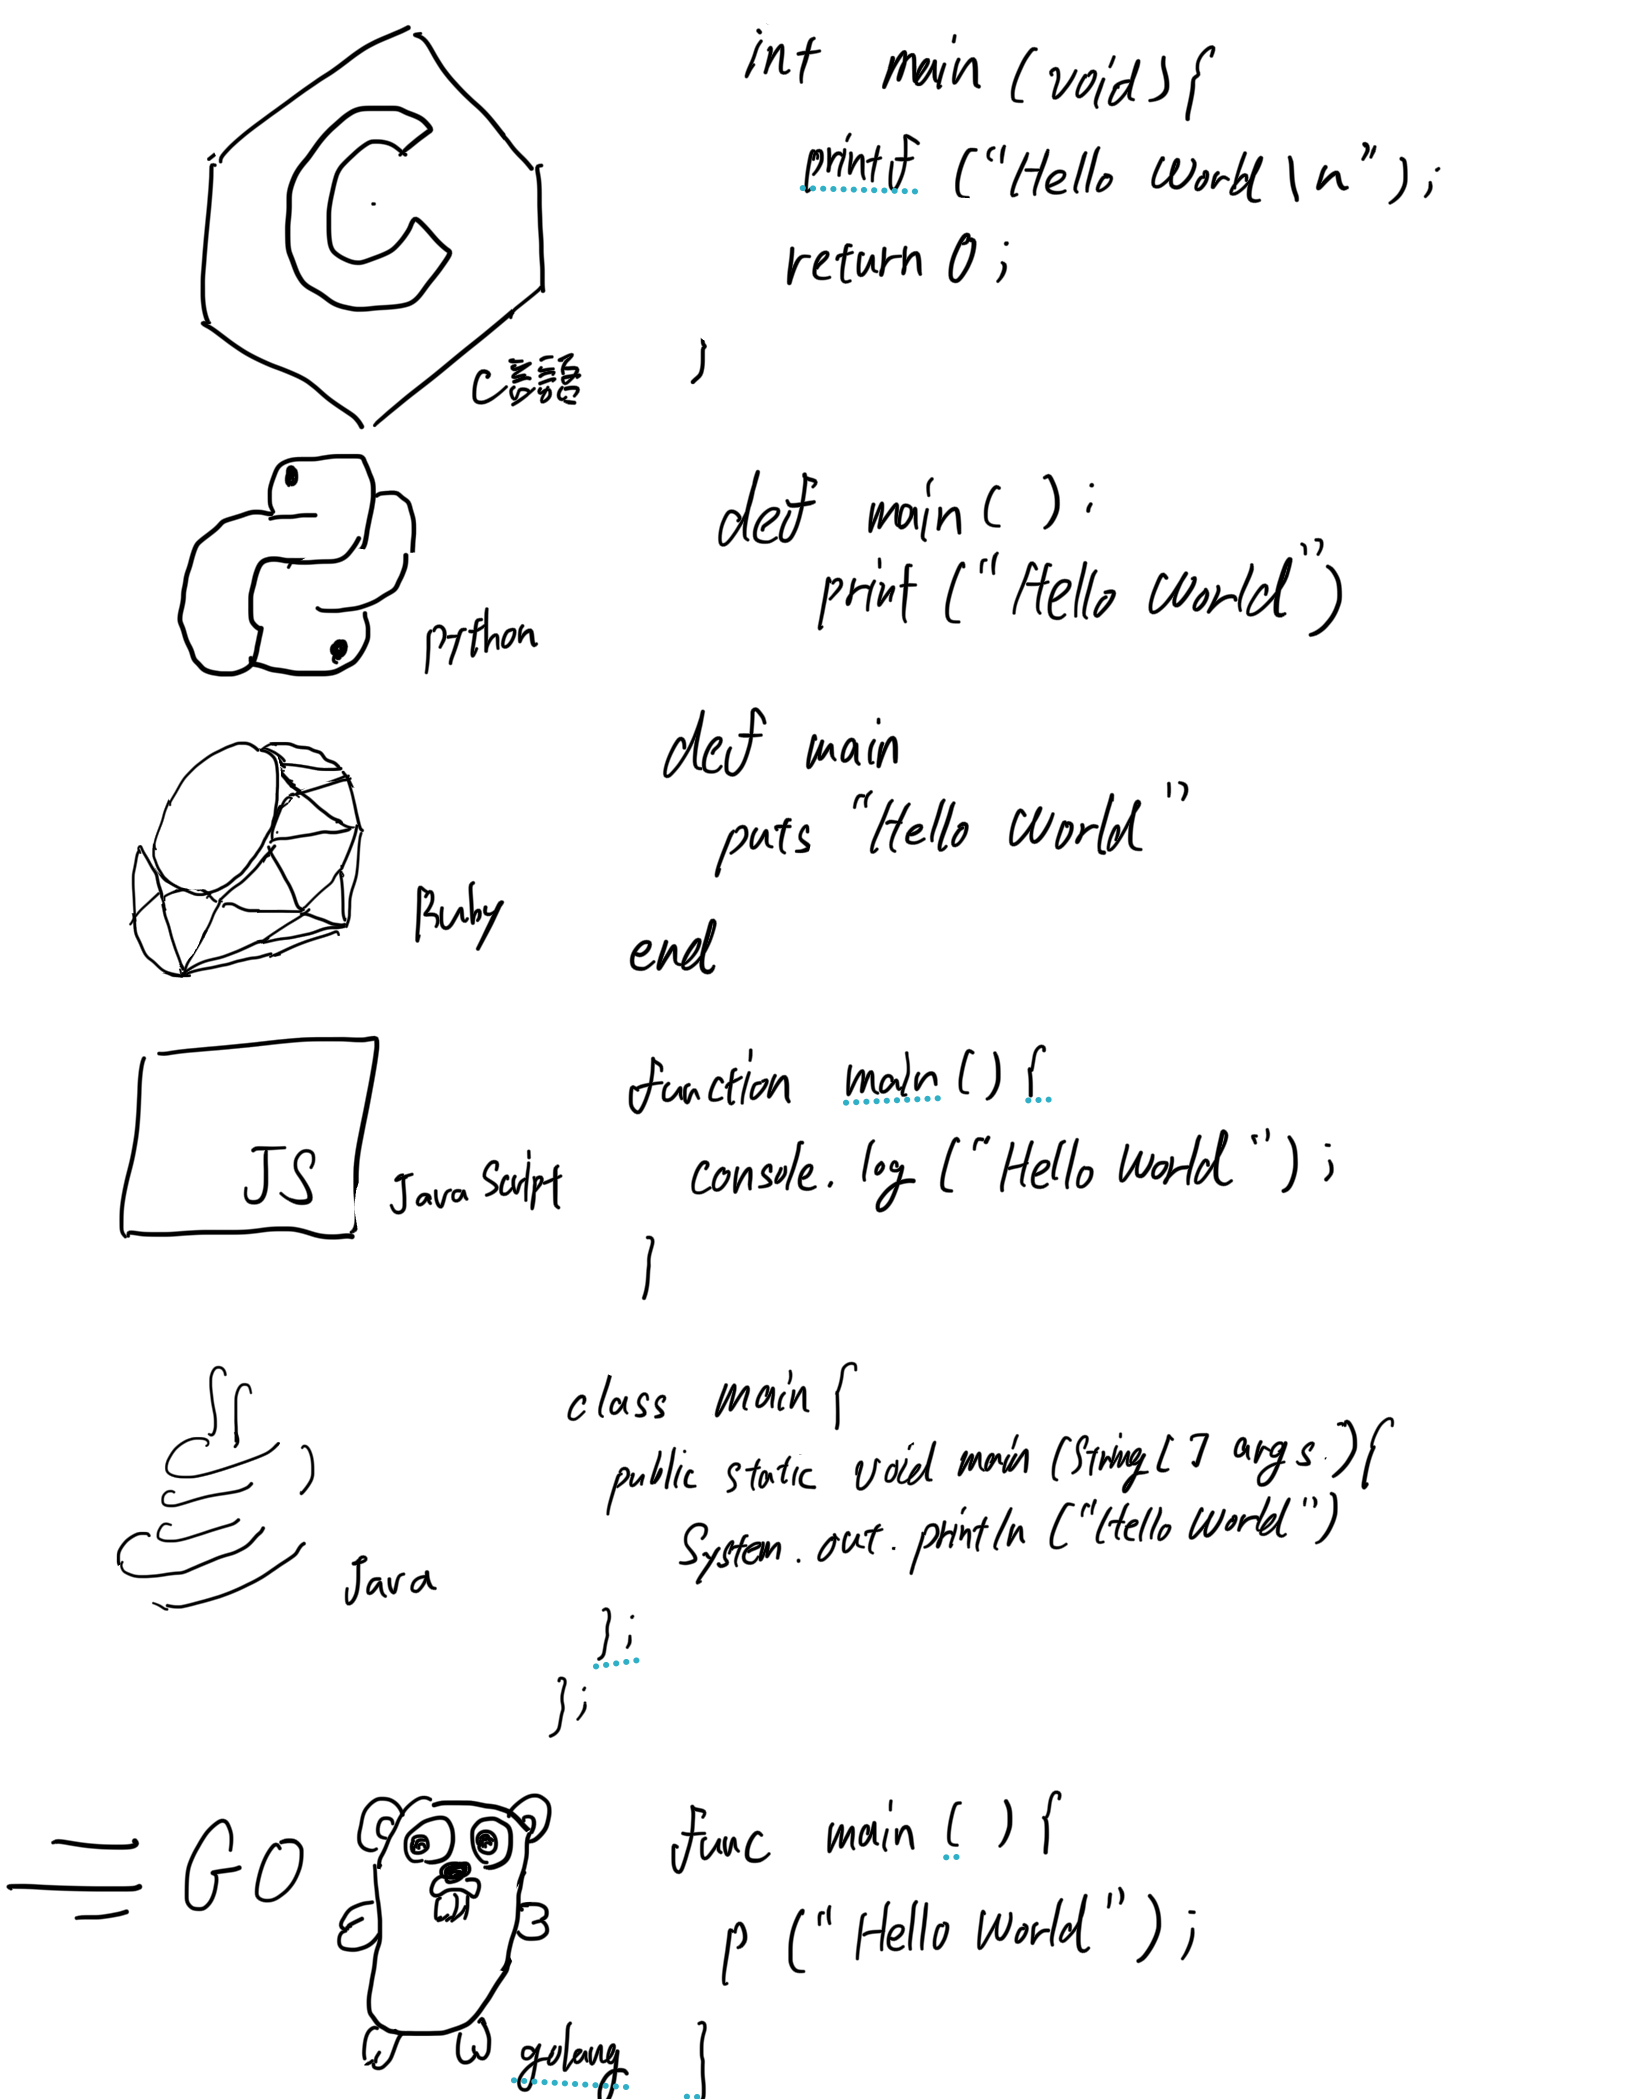 C
int main (void) {
printf ("Hello World \n");
return 0;
}
C言語
def main( ):
print ("Hello World")
python
def main
puts "Hello World"
end
Ruby
function main () {
console.log ("Hello World");
}
JS
JavaScript
class main {
public static void main (String [ ] args.) {
System.out.println ("Hello World")
};
};
Java
GO
func main ( ) {
p ("Hello World");
}
golang